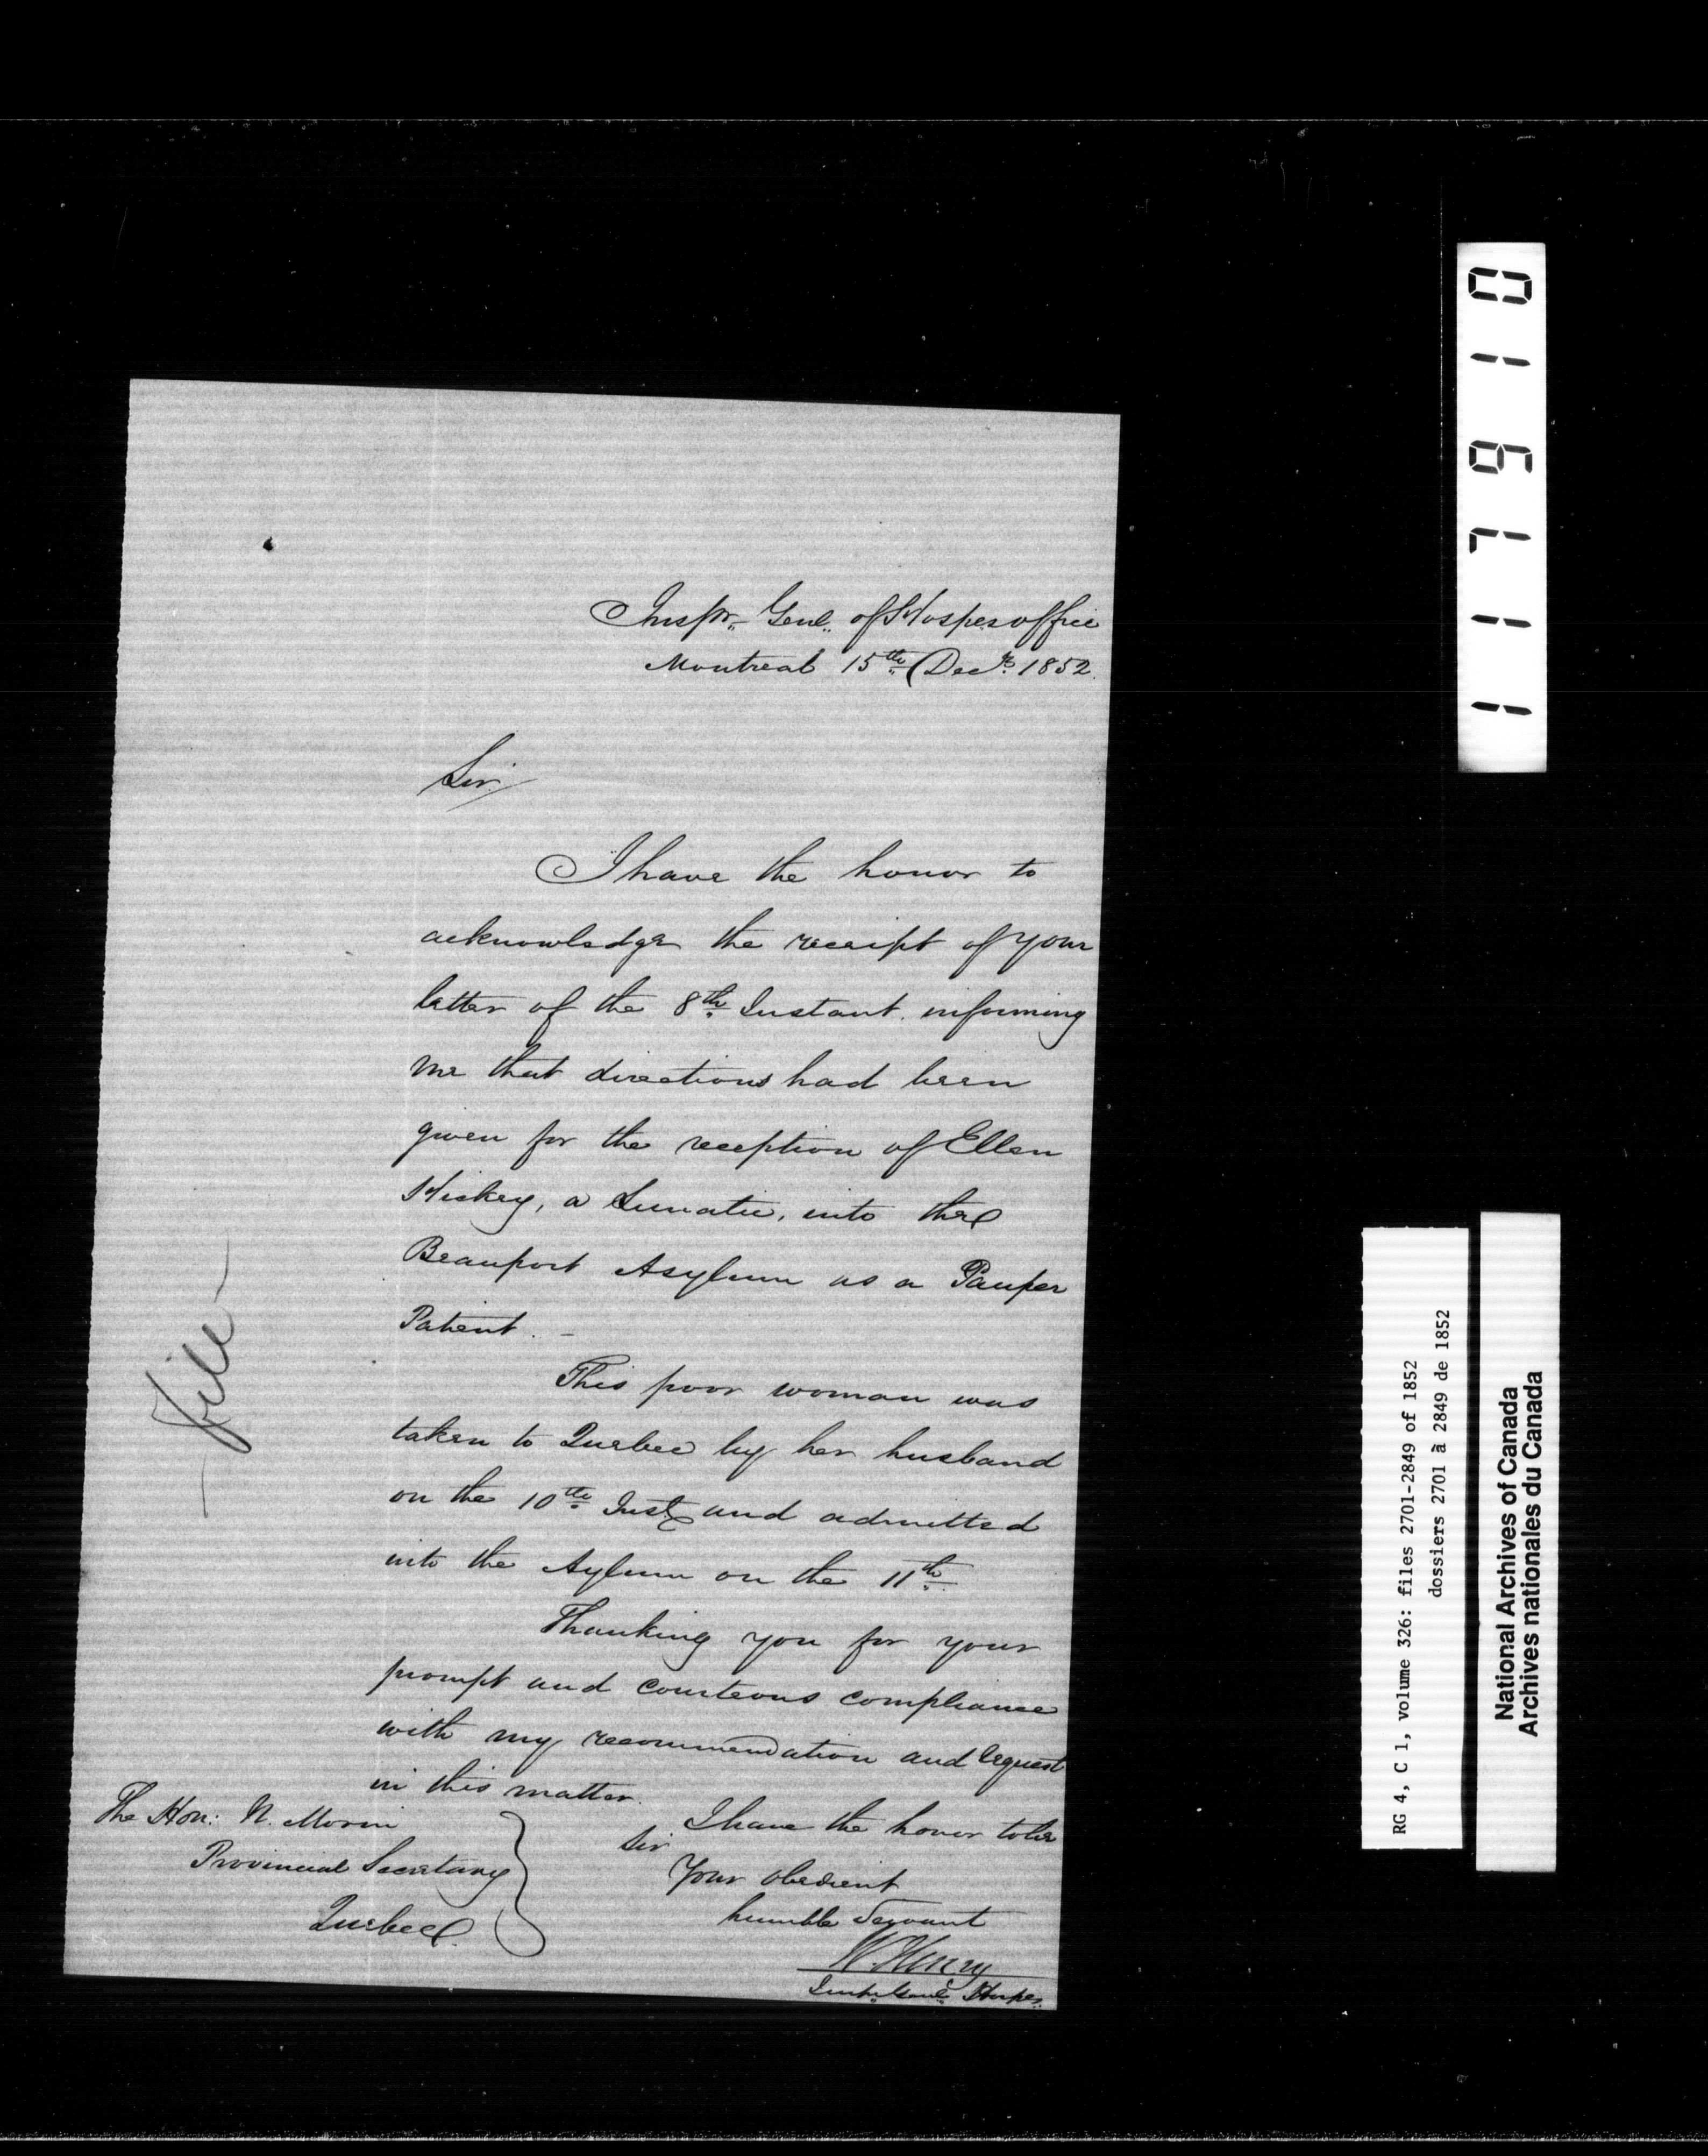 Inspr. Genl. of Hosps office
Montreal 15th Decr. 1852.
Sir
I have the honor to
acknowledge the receipt of your
letter of the 8th Instant. informing
me that directions had been
given for the reception of Ellen
Hickey, a Lunatic, into the
Beauport Asylum as a Pauper
Patient. -
This poor woman was
taken to Quebec by her husband
on the 10th Inst and admitted
into the Aylum on the 11th
Thanking you for your
prompt and courteous compliance
with my recommendation and request
in this matter.
I have the honor to be
Sir
Your obedient
humble Servant
W. Henry
Inspr. Genl. Hospes.
The Hon: N. Morin
Provincial Secretary
Quebec.
- file -
117910
RG 4, C 1, volume 326: files 2701-2849 of 1852
dossiers 2701 à 2849 de 1852
National Archives of Canada
Archives nationales du Canada